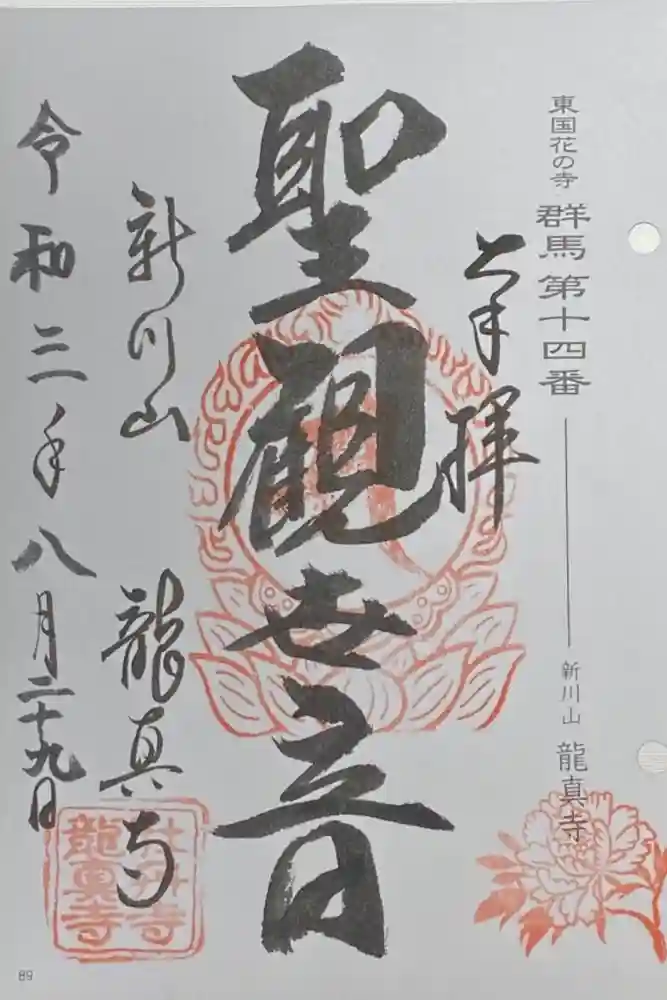 東国花の寺 群馬第十四番
新川山 龍真寺
奉拝
聖観世音
新川山 龍真寺
令和三年八月二十九日
牡丹寺
龍真寺
89